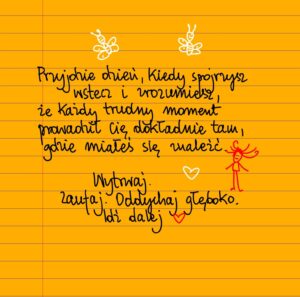 Przyjdzie dzień, kiedy spojrzysz
wstecz i zrozumiesz,
że każdy trudny moment
prowadził Cię, dokładnie tam,
gdzie miałeś się znaleźć.
Wytrwaj.
Zaufaj. Oddychaj głęboko.
Idź dalej